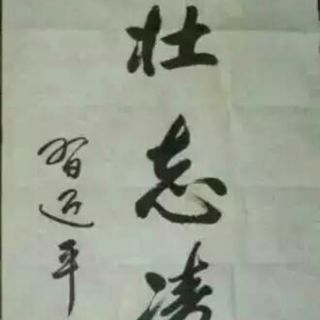 壮志凌
習近平